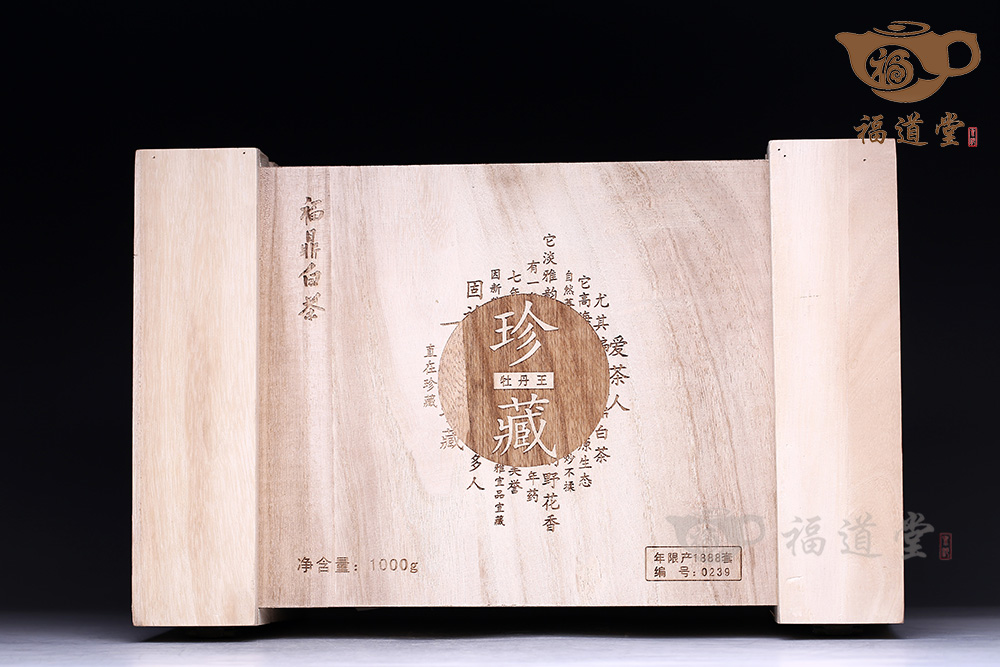 福
福道堂
福鼎白茶
爱茶人
尤其
白茶
它高
原生态
自然
炒不揉
它淡雅韵
野花香
有一
年药
七年
美誉
因新
雅宜品宜藏
固
多人
直在珍藏
藏
珍
牡丹王
藏
福道堂
净含量：1000g
年限产1888套
编 号：0239